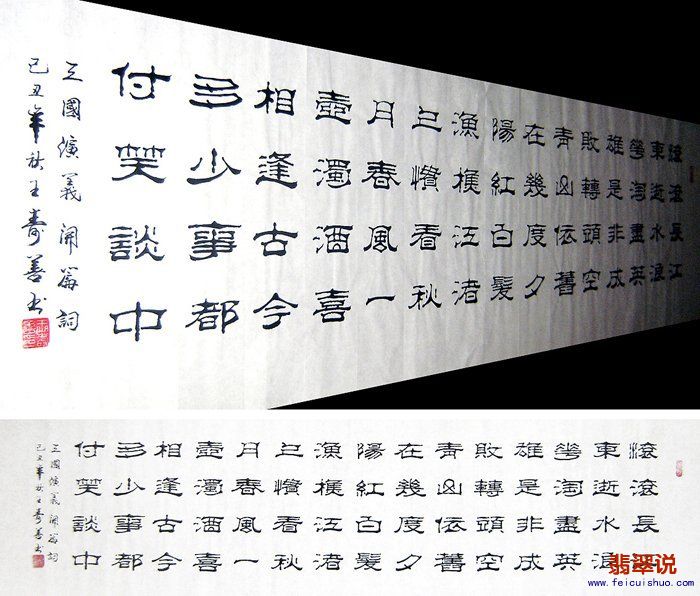 滾滾長江
東逝水浪
華淘盡英
雄是非成
敗轉頭空
青山依舊
在幾度夕
陽紅白髮
漁樵江渚
上慣看秋
月春風一
壺濁酒喜
相逢古今
多少事都
付笑談中
三國演義開篇詞
己丑年秋王壽善书
滾滾長江
東逝水浪
華淘盡英
雄是非成
敗轉頭空
青山依舊
在幾度夕
陽紅白髮
漁樵江渚
上慣看秋
月春風一
壺濁酒喜
相逢古今
多少事都
付笑談中
三國演義開篇詞
己丑年秋王壽善书
翡翠说
www.feicuishuo.com